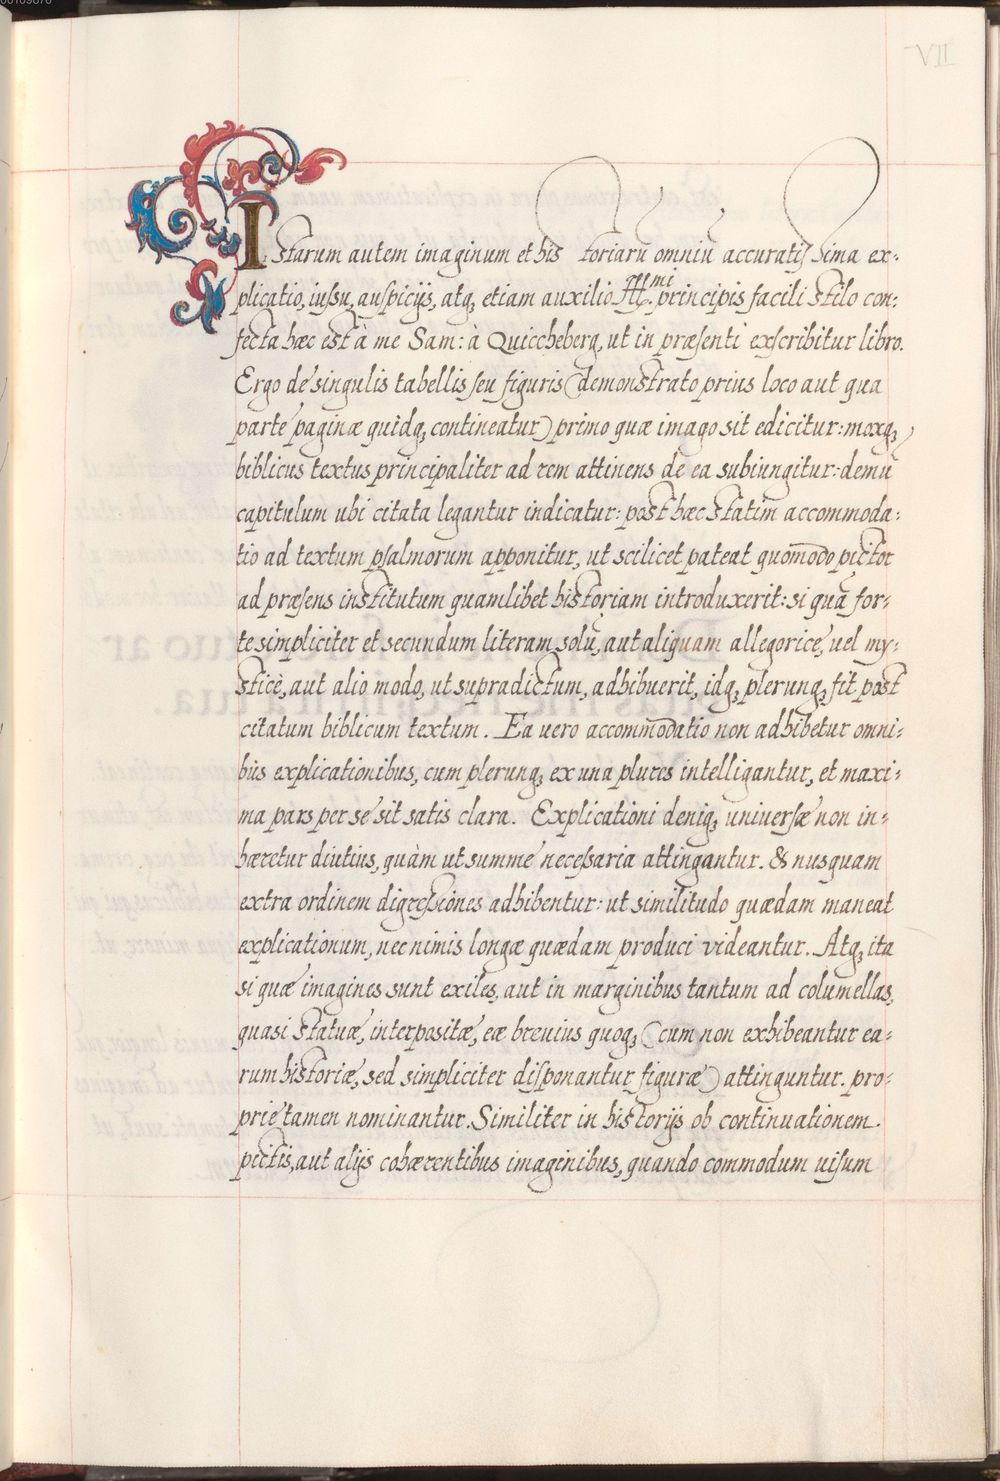 00109870
VII
Istarum autem imaginum et his toriarū omniū accuratissima ex=
plicatio, iussu, auspicijs, atq; etiam auxilio Ill.mi principis facili stilo con=
fecta hæc est à me Sam: à Quiccheberg, ut in præsenti exscribitur libro.
Ergo de singulis tabellis seu figuris (demonstrato prius loco aut qua
parte paginæ quidq; contineatur) primo quæ imago sit edicitur: moxq;
biblicus textus principaliter ad rem attinens de ea subiungitur: demū
capitulum ubi citata legantur indicatur: post hæc statim accommoda=
tio ad textum psalmorum apponitur, ut scilicet pateat quomodo pictor
ad præsens institutum quamlibet historiam introduxerit: si quā for=
te simpliciter et secundum literam solū, aut aliquam allegorice, uel my=
sticè, aut alio modo, ut supradictum, adhibuerit, idq; plerunq; fit post
citatum biblicum textum. Ea uero accommodatio non adhibetur omni=
bus explicationibus, cum plerunq; ex una plures intelligantur, et maxi=
ma pars per se sit satis clara. Explicationi deniq; uniuersæ non in=
hæretur diutius, quàm ut summe necessaria attingantur. & nusquam
extra ordinem digressiones adhibentur: ut similitudo quædam maneat
explicationum, nec nimis longæ quædam produci videantur. Atq; ita
si quæ imagines sunt exiles, aut in marginibus tantum ad columellas,
quasi statuæ, interpositæ, eæ breuius quoq; (cum non exhibeantur ea=
rum historiæ, sed simpliciter disponantur figuræ) attinguntur. pro=
prie tamen nominantur. Similiter in historijs ob continuationem
pictis, aut alijs cohærentibus imaginibus, quando commodum uisum